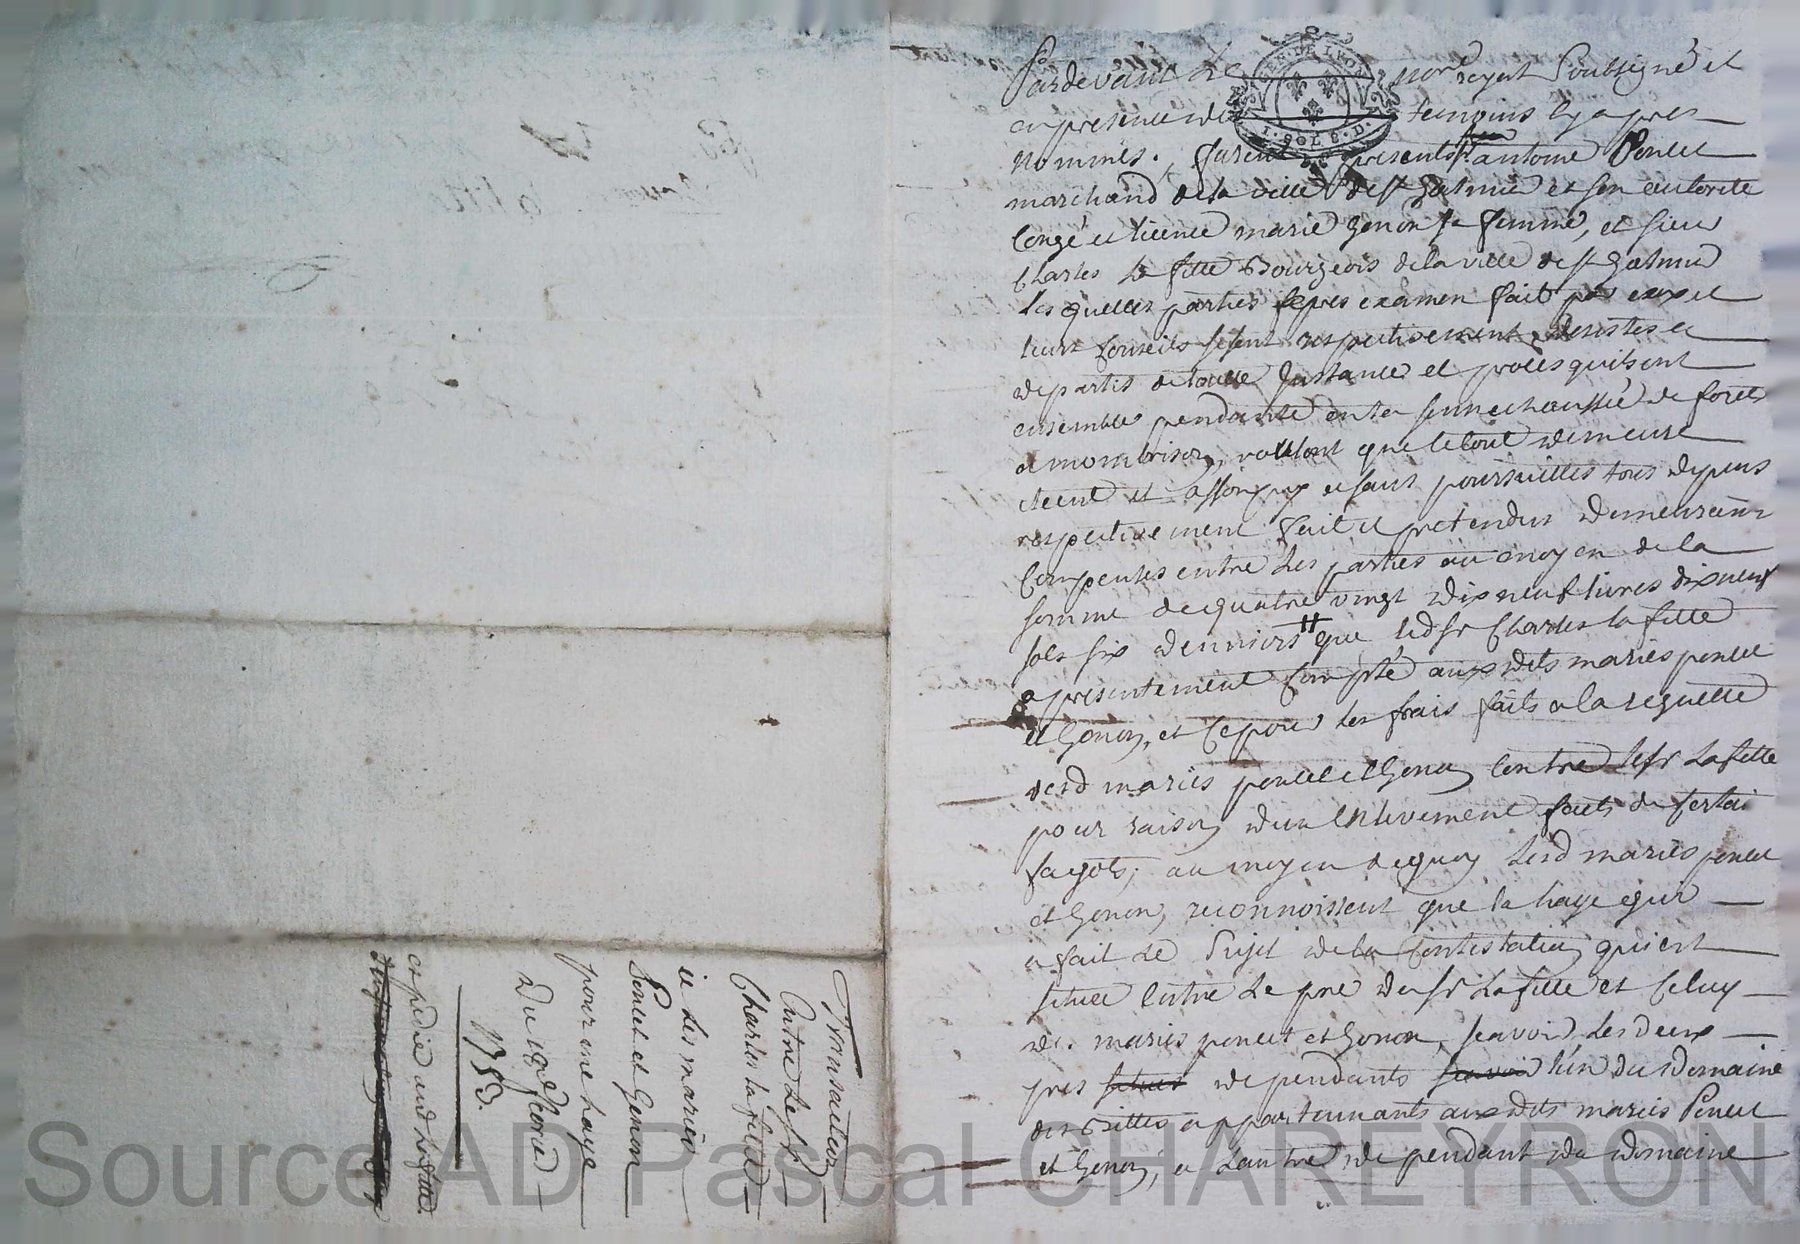 Pardevant Le nore royal soubsigné et
en presence des temoins cy apres
nommés. furent presents sr antoine Poncet
marchand de la ville de st Galmier et son autorite
congé et licence marie Gonon sa femme, et sieur
Charles la fitte Bourgeois de la ville de st Galmier
Lesquelles parties apres examen fait par eux et
leurs conseils se sont respectivement desistés et
departis de toutte Instance et procès quils ont
ensemble pendante en la sennechaussée de forets
a montbrison, veullont que le tout demeure
eteint et assoupy et sans poursuittes tous depens
respectivement fait et pretendus demeurants
Compensés entre Les parties au moyen de la
somme de quatre vingt dix neuf livres dix neuf
sols six denniers que led sr Charles la fitte
a presentement Compté aux dits mariés poncet
et Gonon, et ce pour les frais faits a la requette
desd mariés poncet et Gonon contre le sr Lafitte
pour raison d'un Enlevement faits de certai
fagots; au moyen de quoy Lesd mariés poncet
et Gonon, reconnoissent que la haye qui
a fait Le Sujet de la Contestation qui est
située Entre Le pré du sr Lafitte et Celuy
des mariés poncet et Gonon, scavoir Les deux
prés situés dependants scavoir l'un du Domaine
des appartennants aux dits mariés Poncet
et Gonon, et Lautre dependant du Domaine
Transaction
Entre Le sr
Charles la fitte
et Les mariés
Poncet et Gonon
pour une haye
Du
1750.
expedié aud Lafitte
I · SOL 8 · D ·
GEN · DE LYON
Source AD Pascal CHAREYRON